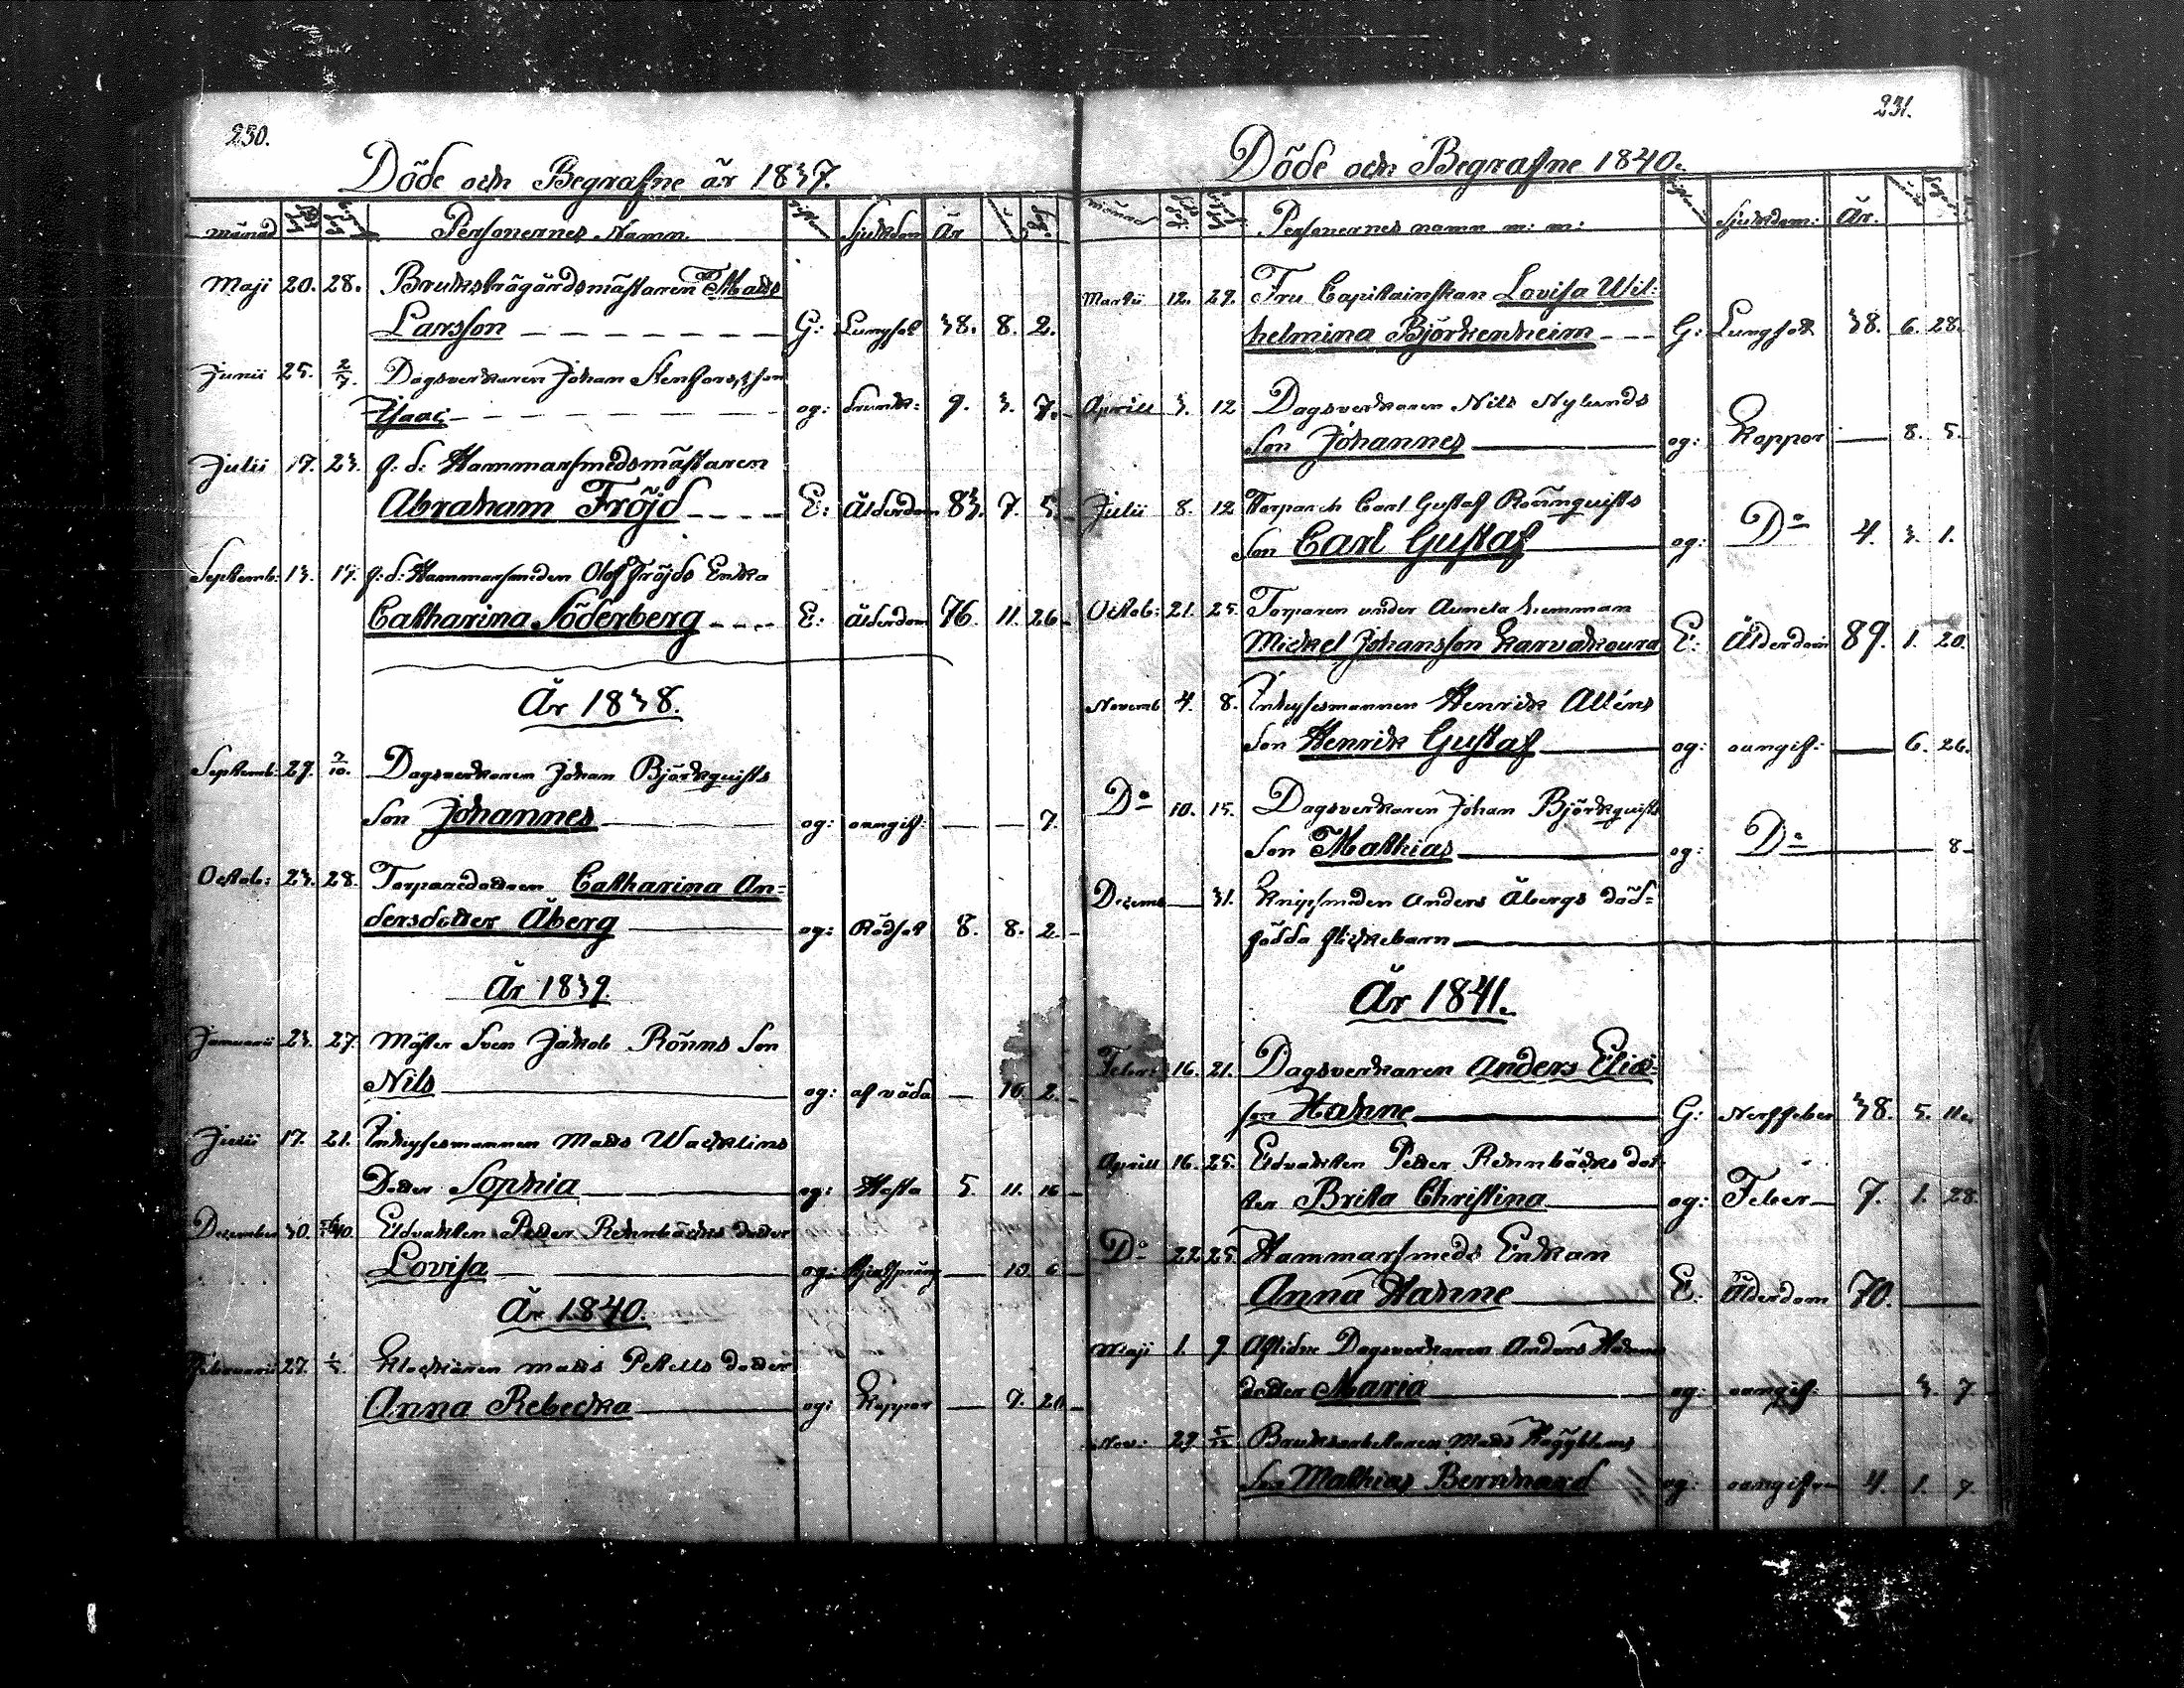 230.
Döde och Begrafne år 1837.
Månad Personernes Namn. Sjukdom År
Maji 20. 28. Bruksträgårdsmästaren Matts
Larsson G: Lungsot 38. 8. 2.
Junii 25. 2/7. Dagsverkaren Johan Stenfors, son
Isaac og: 9. 3. 7.
Julii 17. 23. f. d. Hammarsmedsmästaren
Abraham Fröjd E: Ålderdom 83. 7. 5.
Septemb: 13. 17. f: d: Hammarsmeden Olof Fröjds Enka
Catharina Söderberg E: Ålderdom 76. 11. 26
År 1838.
Septemb: 27. 2/10. Dagsverkaren Johan Björkquists
Son Johannes og: oangif: 7.
Octob: 23. 28. Torparedottren Catharina An=
dersdotter Åberg og: Rödsot 8. 8. 2.
År 1839.
Januarii 23. 27. Mäster Sven Jakob Rönns Son
Nils og: af våda 10. 2.
Julii 17. 21. Inhysesmannen Matts Wacklins
Dotter Sophia og: Hosta 5. 11. 16
December 30. Eldvakten Petter Rehnbäcks dotter
Lovisa og: 10. 6
År 1840.
Februarii 27. 1/3. Klockaren Matts Petells dotter
Anna Rebecka og: Koppor 9. 20
231.
Döde och Begrafne 1840.
Månad Personernes namn m: m: Sjukdom: År.
Martii 12. 29. Fru Capitainskan Lovisa Wil:
helmina Björkenheim G: Lungsot 38. 6. 28.
Aprill 3. 12 Dagsverkaren Nils Nylunds
Son Johannes og: Koppor 8. 5.
Julii 8. 12 Torparen Carl Gustaf Rönnquists
Son Carl Gustaf og: Do 4. 3. 1.
Octob: 21. 25. Torparen under hemman
Mickel Johansson Karvakoura E: Ålderdom 89. 1. 20.
Novemb 4. 8. Inhysesmannen Henrik Alléns
Son Henrik Gustaf og: oangif: 6. 26.
Do 10. 15. Dagsverkaren Johan Björkquists
Son Mathias og: Do 8
Decemb 31. Knipsmeden Anders Åbergs död=
födda flickebarn
År 1841.
Febr: 16. 21. Dagsverkaren Anders Elias
son Hahne G: Nerffeber 38. 5. 11.
Aprill 16. 25. Eldvakten Petter Rehnbäcks dot
ter Brita Christina og: Feber 7. 1. 28.
Do 22 25. Hammarsmeds Enkan
Anna Hahne E: Ålderdom 70.
Maji 1. 9 Aflidne Dagsverkaren Anders Hahnes
dotter Maria og: oangif: 3. 7
Nov: 29 5/12 Bruksarbetaren Matts Häggbloms
Son Mathias Bernhard og: oangif: 4. 1. 7.